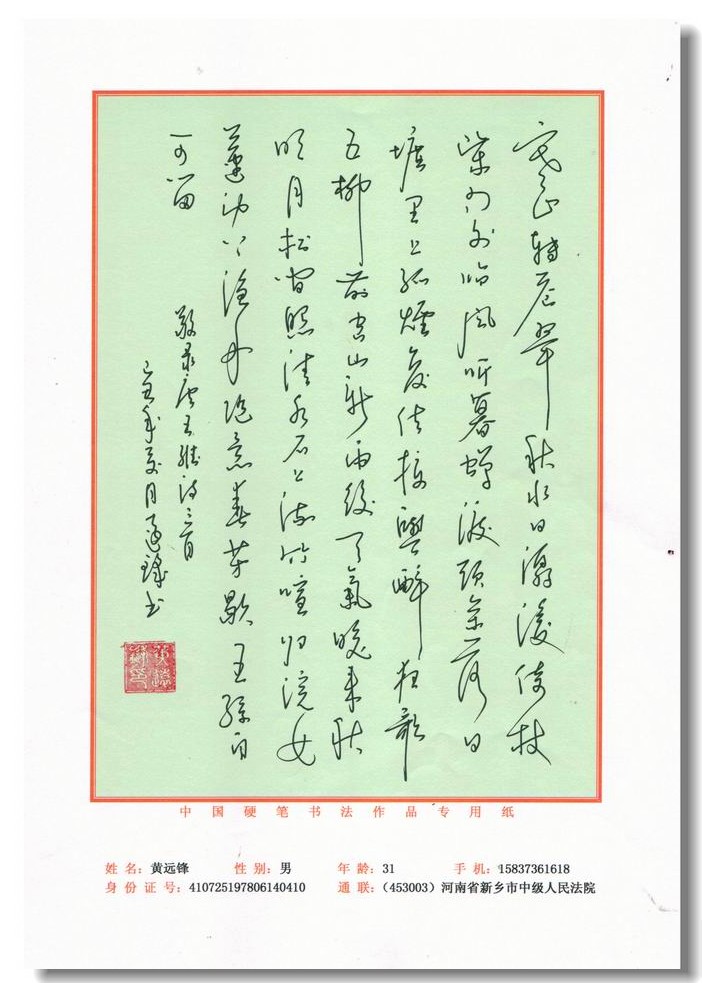 寒山轉蒼翠秋水日潺湲倚杖
柴门外临风听暮蝉渡头余落日
墟里上孤煙復值接輿醉狂歌
五柳前空山新雨後天氣晚来秋
明月松间照清泉石上流竹喧归浣女
莲动下渔舟随意春芳歇王孫自
可留
敬录唐王維诗二首
己丑年夏月遠鋒书
中国硬笔书法作品专用纸
姓 名：黄远锋 性 别：男 年 龄：31 手 机：15837361618
身 份 证 号：410725197806140410 通 联：（453003）河南省新乡市中级人民法院